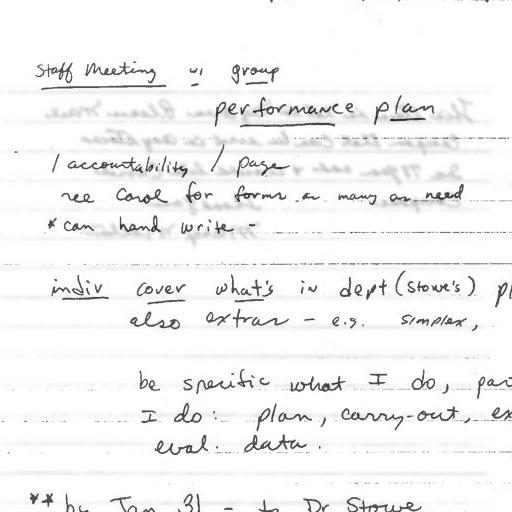 Staff Meeting w/ group
performance plan
1 accountability / page
see Carol for forms as many as need
* can hand write -
indiv cover what's in dept (Stowe's)
also extras - e.g. simplex,
be specific what I do,
I do: plan, carry-out,
eval. data.
** by Jan 31 - to Dr Stowe